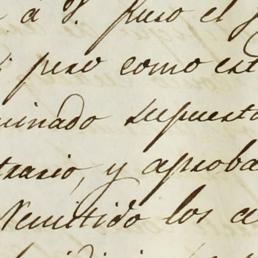 a V. puso el
pero como est
minado supuesto
trario, y aproba
Remitido los